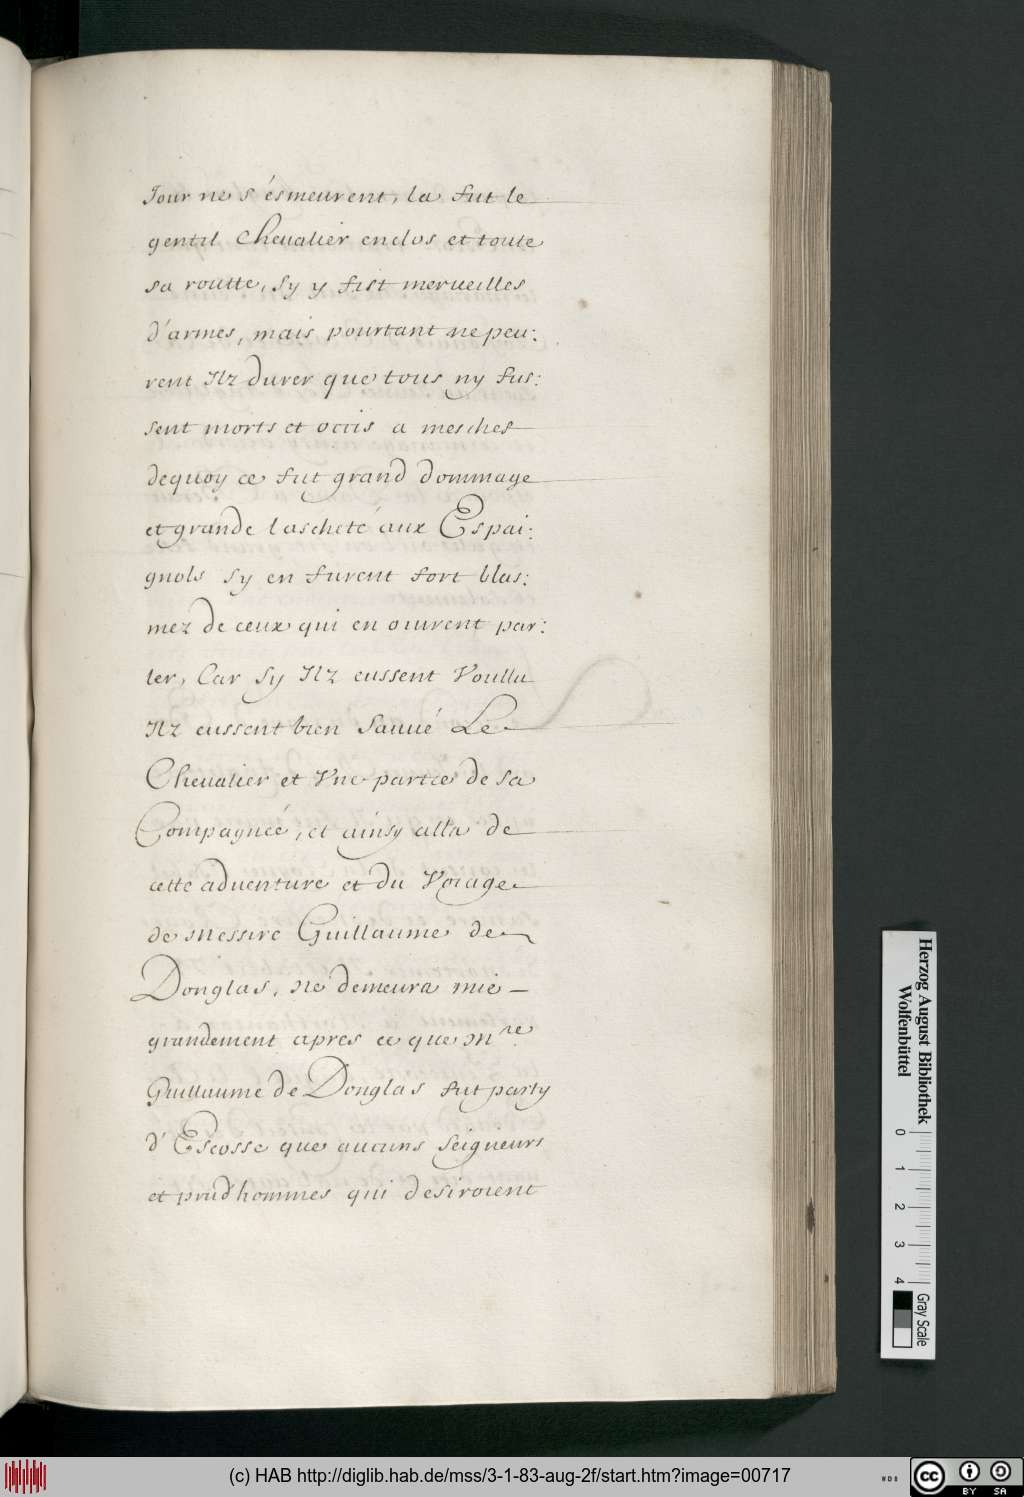 Jour ne s'ésmeurent, la fut le
gentil Chevalier enclos et toute
sa routte, sy y fist merveilles
d'armes, mais pourtant ne peu:
rent Ilz durer que tous ny fus:
sent morts et occis a mesches
dequoy ce fut grand dommage
et grande lascheté aux Espai:
gnols sy en furent fort blas:
mez de ceux qui en ouirent par:
ler, Car sy Ilz eussent Voullu
Ilz eussent bien Sauué Le
Cheualier et Vne partie de sa
Compagnéé, et ainsy alla de
cette aduenture et du Voiage
de Messire Guillaume de
Donglas, Ne demeura mie
grandement apres ce que Mre.
Guillaume de Donglas fut party
d'Escosse que aucuns Seigneurs
et prud'hommes qui desiroient
Herzog August Bibliothek
Wolfenbüttel
0 1 2 3 4
Gray Scale
(c) HAB http://diglib.hab.de/mss/3-1-83-aug-2f/start.htm?image=00717
WDB
cc BY SA